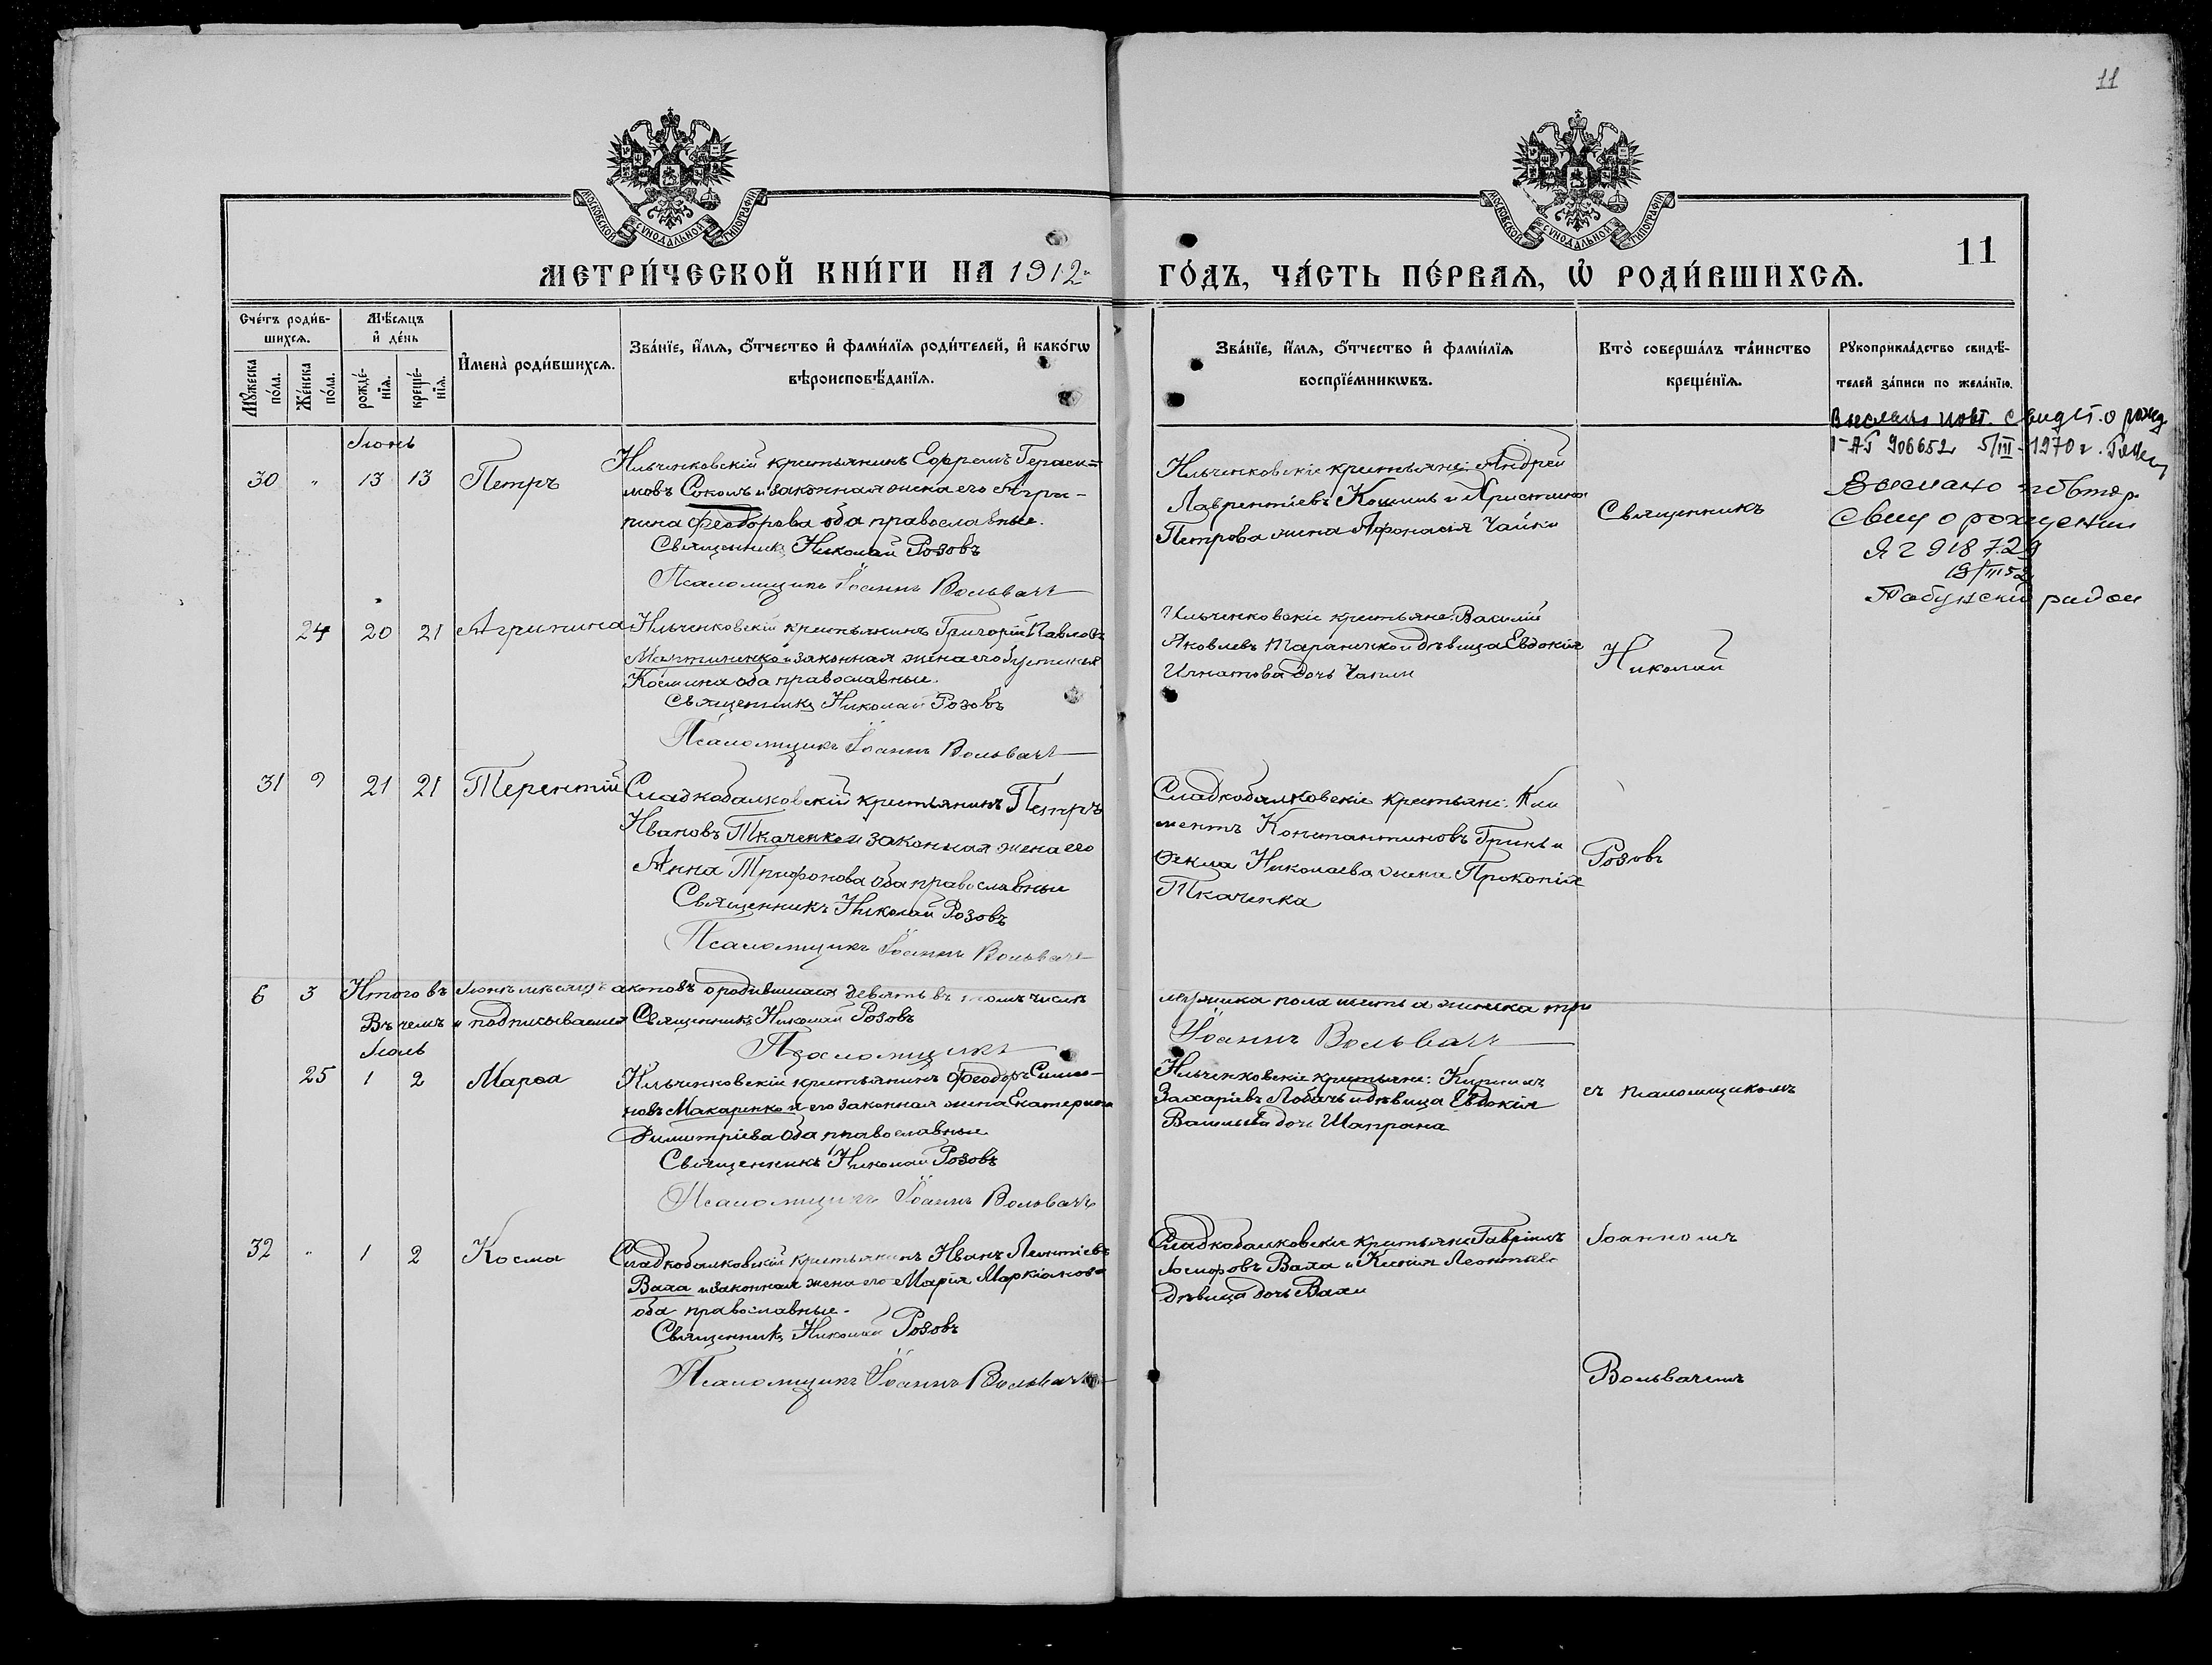 11
МОСКОВСКОЙ СУНОДАЛЬНОЙ ТИПОГРАФІИ
МОСКОВСКОЙ СУНОДАЛЬНОЙ ТИПОГРАФІИ
11
МЕТРИ́ЧЕСКОЙ КНИ́ГИ НА 1912
ГО́ДЪ, ЧА́СТЬ ПЕ́РВАѦ, Ѡ҆ РОДИ́ВШИХСѦ.
Сче́тъ роди́в-
шихсѧ.
Мѣ́сѧцъ
и҆ де́нь
Мꙋ́жеска
по́ла.
Же́нска
по́ла.
рожде́-
нїѧ.
креще́-
нїѧ.
И҆мена̀ роди́вшихсѧ.
Зва́нїе, и҆́мѧ, ѻ҆́тчество и҆ фами́лїѧ роди́телей, и҆ како́гѡ
вѣроисповѣ́данїѧ.
Зва́нїе, и҆́мѧ, ѻ҆́тчество и҆ фами́лїѧ
воспрїе́мникѡвъ.
Кто̀ соверша́лъ та́инство
креще́нїѧ.
Рꙋкоприкла́дство свидѣ́-
телей за́писи по жела́нїю.
Выслано повт. свидет. о рожд
I-АГ 906652 5/III-1970 г.
Выслано повтор.
Свид о рождении
ЯГ 918729
Табунский район
Іюнь
30 " 13 13 Петръ
Ильченковскій крестьянинъ Ефремъ Гераси-
мовъ Соколъ и законная жена его Агри-
пина Феодорова оба православные.
Священникъ Николай Розовъ
Псаломщикъ Іоаннъ Вольвачъ
Ильченковскіе крестьяне: Андрей
Лаврентіевъ Кошиль и Христина
Петрова жена Афонасія Чайки
Священникъ
24 20 21 Агрипина
Ильченковскій крестьянинъ Григорій Павловъ
Мартиненко и законная жена его Іустинья
Космина оба православные.
Священникъ Николай Розовъ
Псаломщикъ Іоаннъ Вольвачъ
Ильченковскіе крестьяне: Василій
Яковлевъ Тараненко и дѣвица Евдокія
Игнатова дочь
Николай
31 " 21 21 Терентій
Сладкобалковскій крестьянинъ Петръ
Ивановъ Ткаченко и законная жена его
Анна Трифонова оба православные
Священникъ Николай Розовъ
Псаломщикъ Іоаннъ Вольвачъ
Сладкобалковскіе крестьяне: Кли
ментъ Константиновъ Гринь и
Фекла Николаева жена Прокопія
Ткаченка
Розовъ
6 3 Итого въ Іюнѣ мѣсяцѣ актовъ о родившихся девять въ томъ числѣ
мужска пола шесть а женска три
Въ чемъ и подписываемся Священникъ Николай Розовъ
Псаломщикъ
Іоаннъ Вольвачъ
Іюль
25 1 2 Марѳа
Ильченковскій крестьянинъ Феодоръ Симео-
новъ Макаренко и его законная жена Екатерина
Димитріева оба православные
Священникъ Николай Розовъ
Псаломщикъ Іоаннъ Вольвачъ
Ильченковскіе крестьяне: Кириллъ
Захаріевъ Лобачъ и дѣвица Евдокія
Васильева дочь Шапрана
съ псаломщикомъ
32 " 1 2 Косма
Сладкобалковскій крестьянинъ Иванъ Леонтіевъ
Ваха и законная жена его Марія Маркіанова
оба православные.
Священникъ Николай Розовъ
Псаломщикъ Іоаннъ Вольвачъ
Сладкобалковскіе крестьяне Гавріилъ
Іосифовъ Ваха и Ксенія Леонтьева
дѣвица дочь Вахи
Іоанномъ
Вольвачемъ